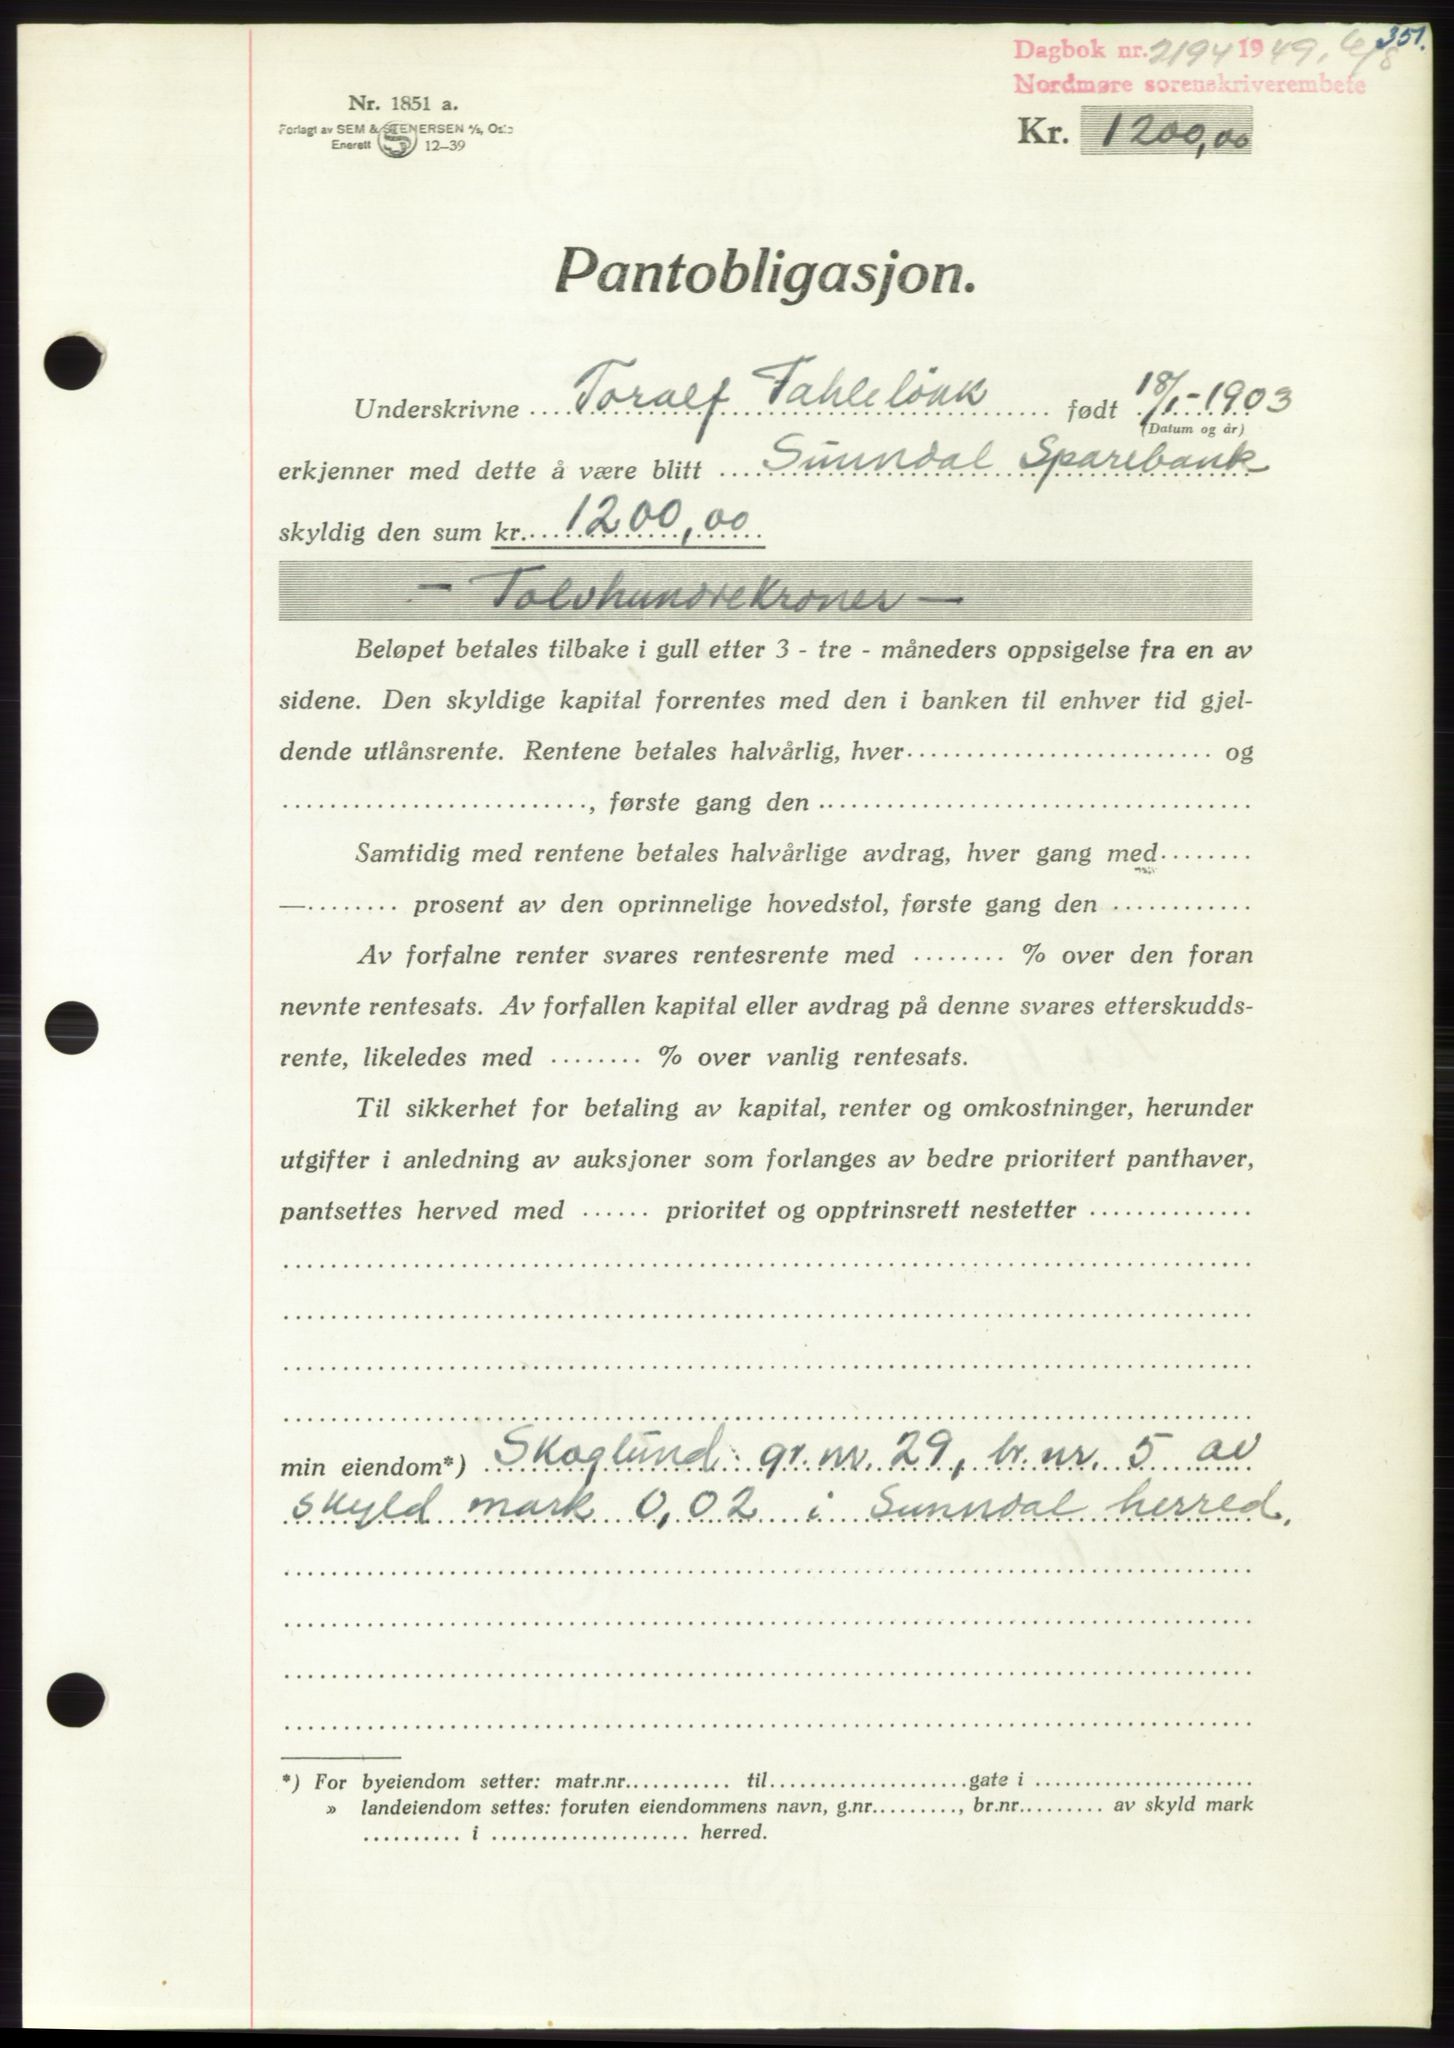 351.
Dagbok nr. 2194 1949, 6/8
Nordmøre sorenskriverembete
Nr. 1851 a.
Forlagt av SEM & STENERSEN A/S, Oslo
Enerett S 12–39
Kr. 1200,00
Pantobligasjon.
Underskrivne Toralf født 18/1-1903
(Datum og år)
erkjenner med dette å være blitt Sunndal Sparebank
skyldig den sum kr. 1200,00
— Tolvhundrekroner —
Beløpet betales tilbake i gull etter 3 - tre - måneders oppsigelse fra en av
sidene. Den skyldige kapital forrentes med den i banken til enhver tid gjel-
dende utlånsrente. Rentene betales halvårlig, hver .......... og
.........., første gang den ..........
Samtidig med rentene betales halvårlige avdrag, hver gang med ........
—........ prosent av den oprinnelige hovedstol, første gang den ..........
Av forfalne renter svares rentesrente med ........ % over den foran
nevnte rentesats. Av forfallen kapital eller avdrag på denne svares etterskudds-
rente, likeledes med ........ % over vanlig rentesats.
Til sikkerhet for betaling av kapital, renter og omkostninger, herunder
utgifter i anledning av auksjoner som forlanges av bedre prioritert panthaver,
pantsettes herved med ...... prioritet og opptrinsrett nestetter ..........
min eiendom*) Skoglund gr. nr. 29, br. nr. 5 av
skyld mark 0,02 i Sunndal herred.
*) For byeiendom setter: matr.nr. .......... til .......... gate i ..........
» landeiendom settes: foruten eiendommens navn, g.nr. ........, br.nr. ........ av skyld mark
.......... i .......... herred.